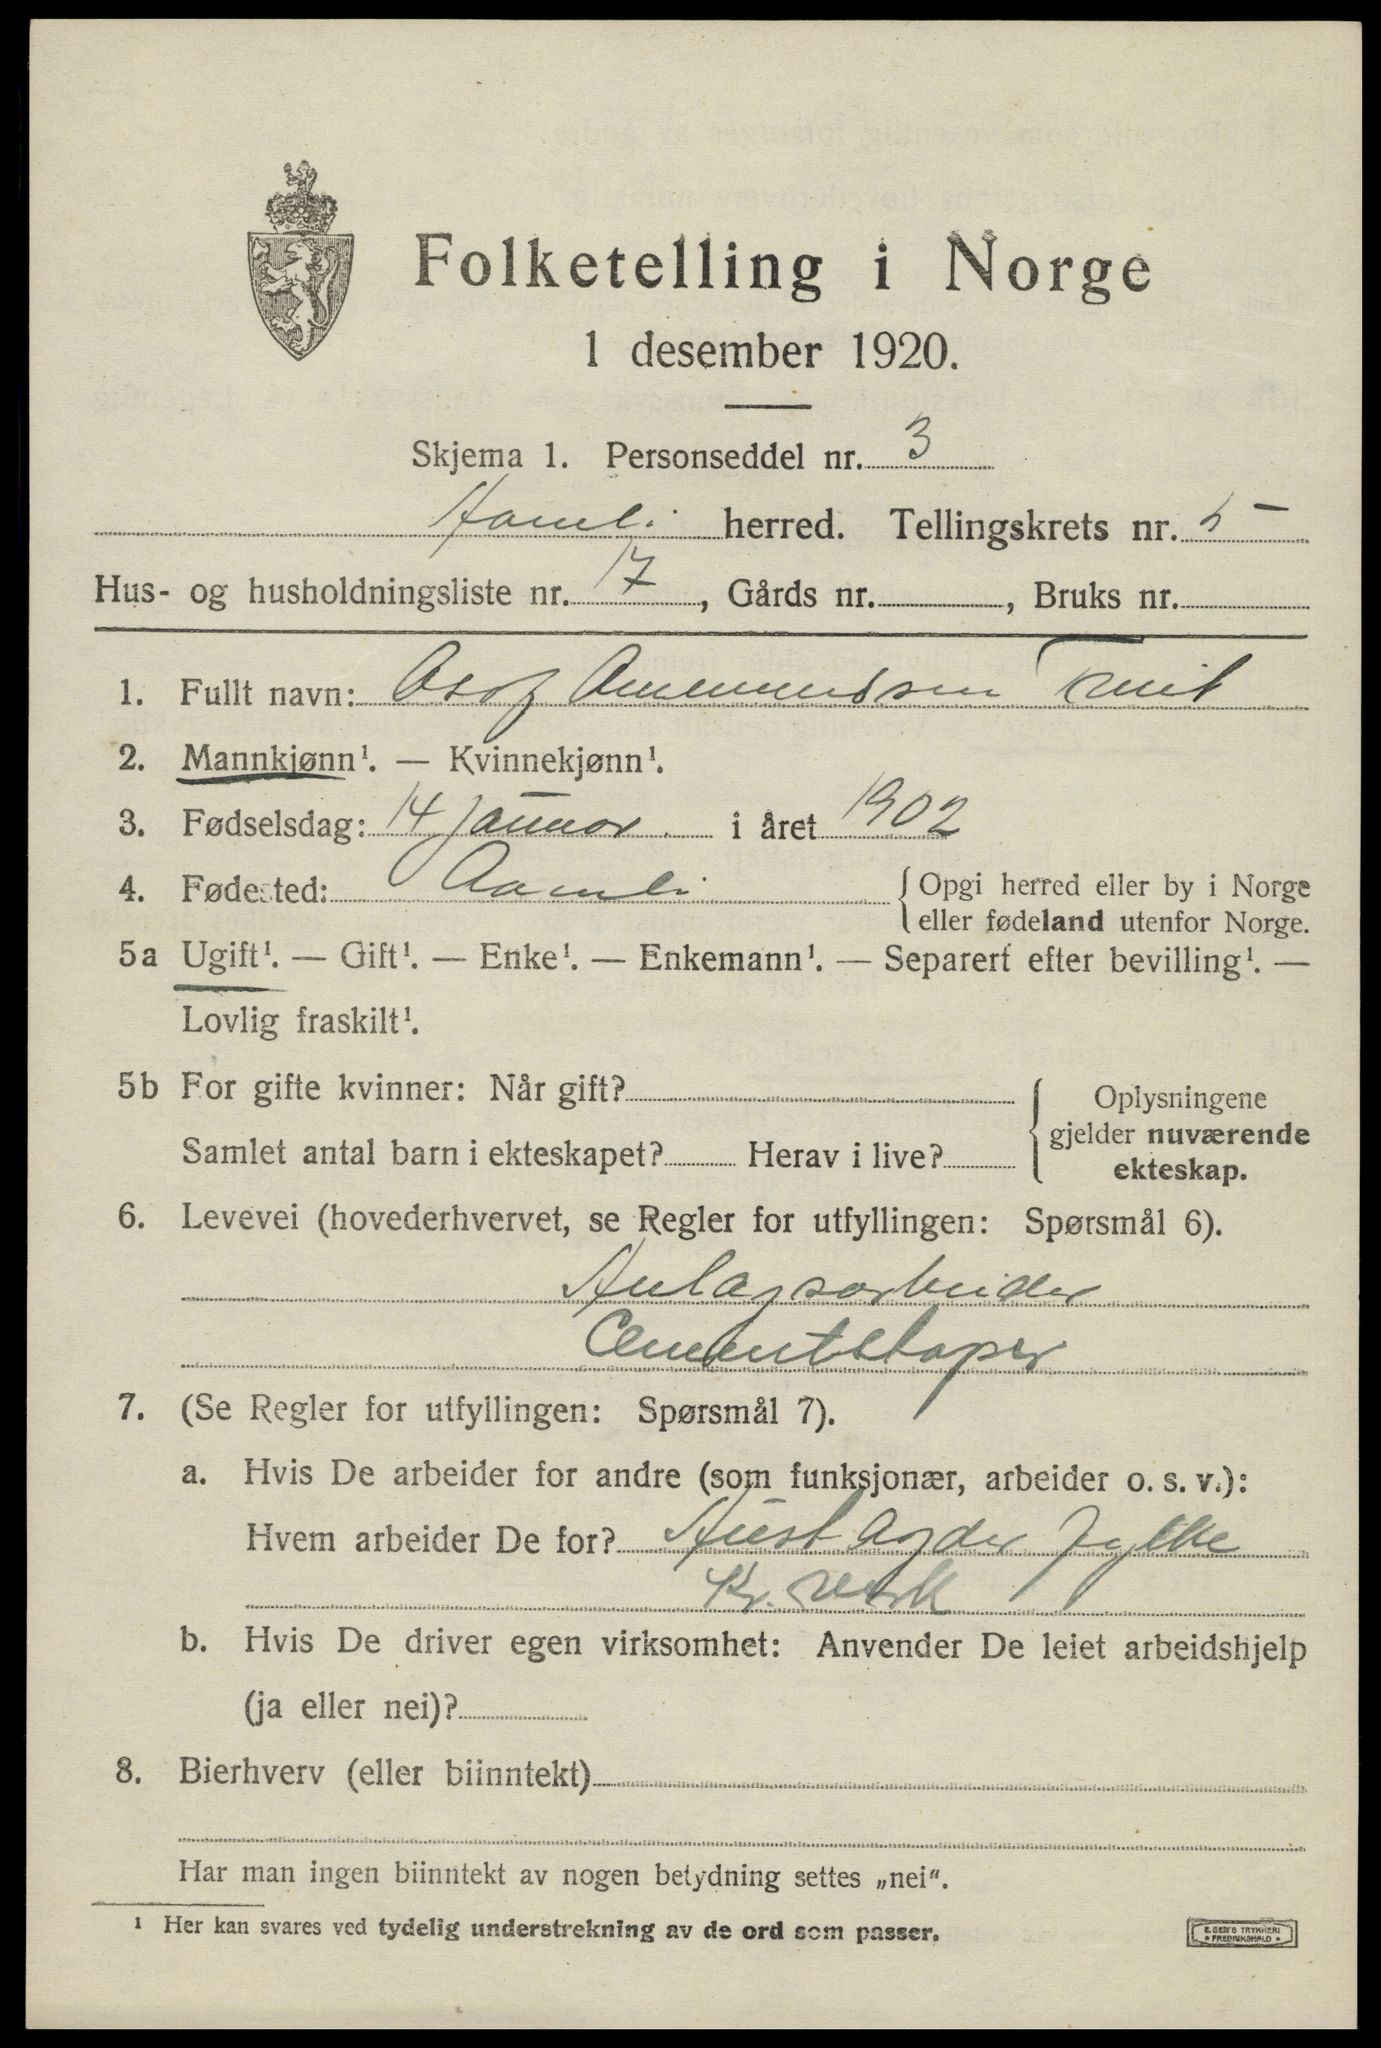 Folketelling i Norge
1 desember 1920.
Skjema 1. Personseddel nr. 3
Aamli herred. Tellingskrets nr. 5
Hus- og husholdningsliste nr. 17, Gårds nr. , Bruks nr.
1. Fullt navn: Amundsen
2. Mannkjønn¹. — Kvinnekjønn¹.
3. Fødselsdag: 14 januar i året 1902
4. Fødested: Aamli {Opgi herred eller by i Norge
eller fødeland utenfor Norge.
5a Ugift¹. — Gift¹. — Enke¹. — Enkemann¹. — Separert efter bevilling¹. —
Lovlig fraskilt¹.
5b For gifte kvinner: Når gift? {Oplysningene
gjelder nuværende
Samlet antal barn i ekteskapet? Herav i live?
ekteskap.
6. Levevei (hovederhvervet, se Regler for utfyllingen: Spørsmål 6).
Anlægsarbeider
Cementstøper
7. (Se Regler for utfyllingen: Spørsmål 7).
a. Hvis De arbeider for andre (som funksjonær, arbeider o. s. v.):
Hvem arbeider De for? Aust Agder fylke
Kr. verk
b. Hvis De driver egen virksomhet: Anvender De leiet arbeidshjelp
(ja eller nei)?
8. Bierhverv (eller biinntekt)
Har man ingen biinntekt av nogen betydning settes „nei“.
¹ Her kan svares ved tydelig understrekning av de ord som passer.
E. SEM'S TRYKKERI
FREDRIKSHALD